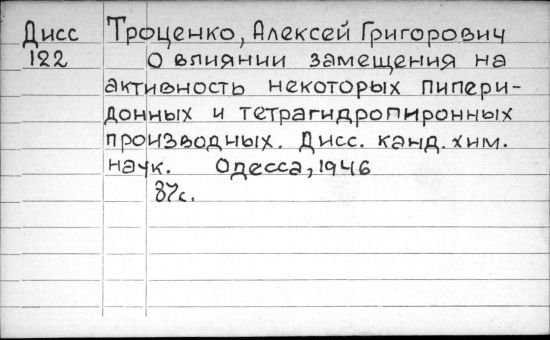 Дисс Троценко, Алексей Григорович
122 О влиянии замещения на
активность некоторых пипери-
донных и тетрагидропиронных
производных. Дисс. канд. хим.
наук. Одесса, 1946
87с.